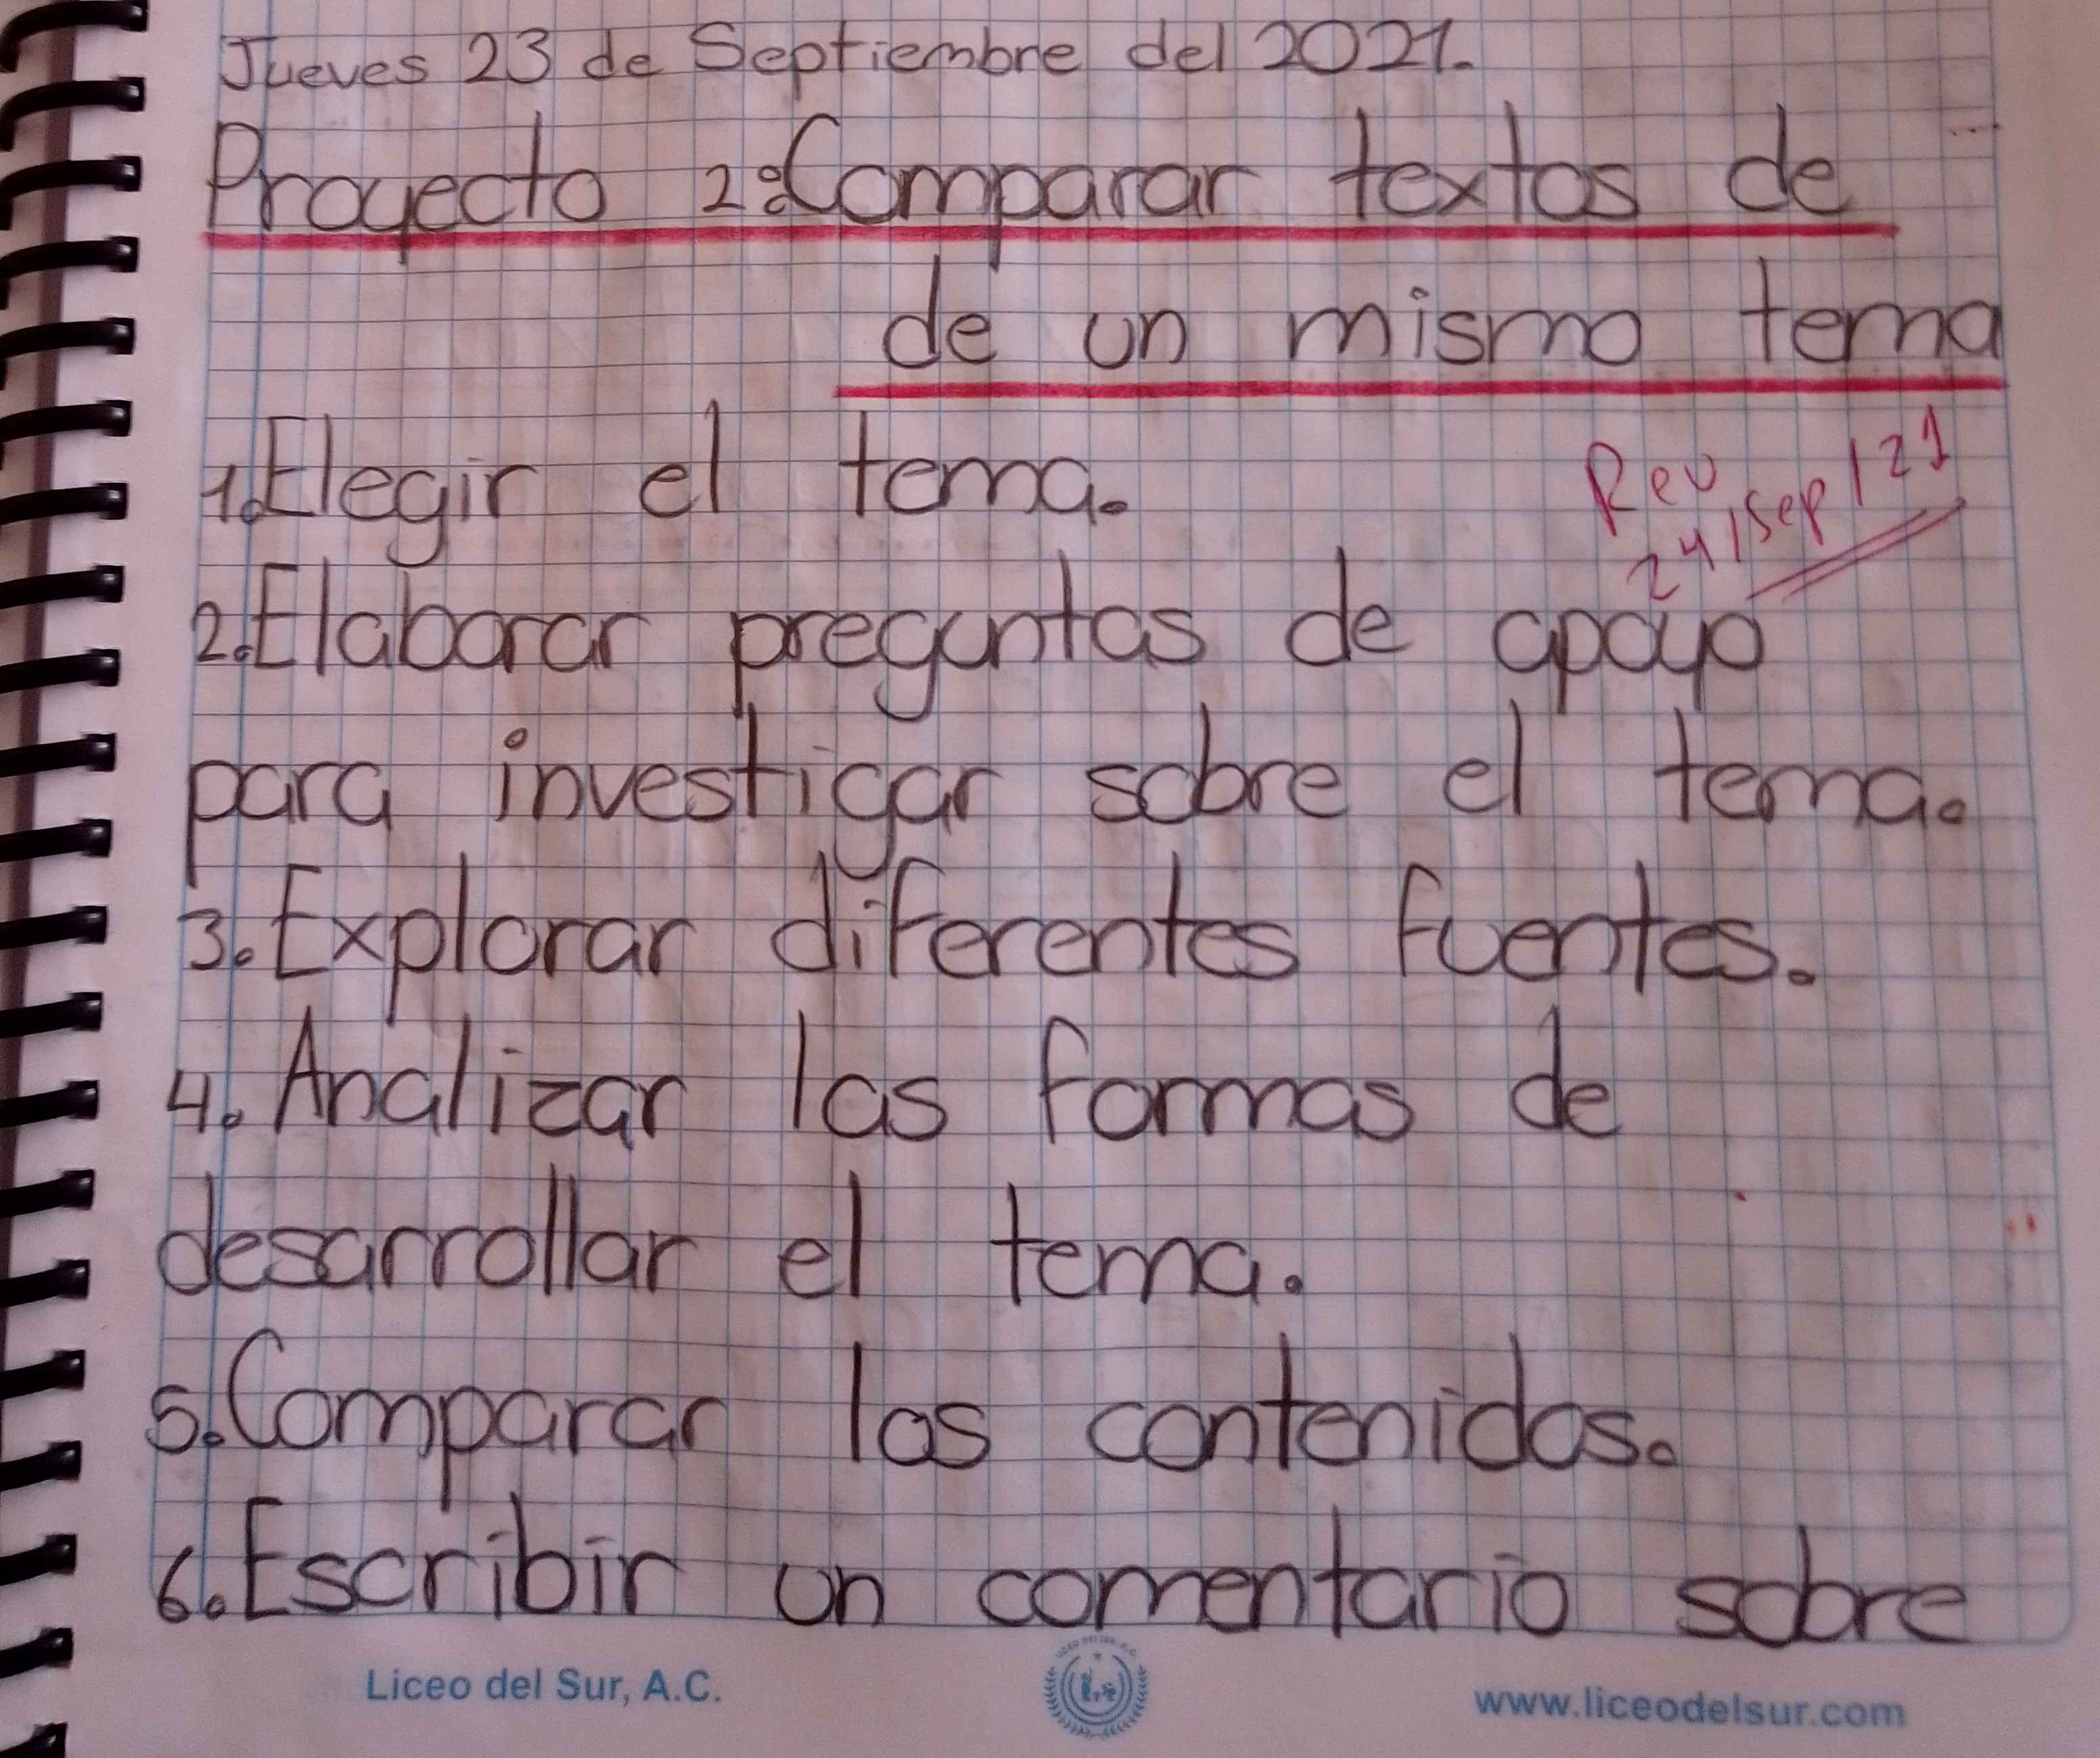 Jueves 23 de Septiembre del 2021.
Proyecto 2: Comparar textos de
de un mismo tema
1. Elegir el tema.
Rev
24/Sep/21
2. Elaborar preguntas de apoyo
para investigar sobre el tema.
3. Explorar diferentes fuentes.
4. Analizar las formas de
desarrollar el tema.
5. Comparar los contenidos.
6. Escribir un comentario sobre
Liceo del Sur, A.C.
www.liceodelsur.com